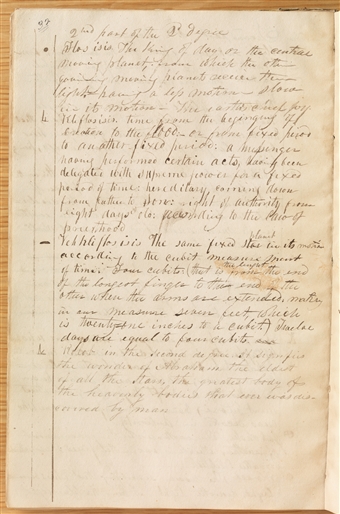 2nd part of the 1st degree
Flos isis The King of day or the central
moving planet, from which the oth
governing moving planets receive their
light having a less motion slow
in its motion The earth's chief joy
Kliflosisis time from the begining of
creation to the or from fixed period
to another fixed period: a messenger
having performed certain acts, having been
delegated with supreme power for a fixed
period of time: hereditary, coming down
from father to son: right of authority from
eight days do: according to the law of
priesthood
Veh Kliflosisis The same fixed star planet in its motion
according to the cubit measurement
of time: Four cubits that is the length from the end
of the longest finger to the end of the
other when the arms are extended, making
in our measure seven feet which
is twenty one inches to a cubit Twelve
days are equal to four cubits
in the second degree it signifies
the wonder of Abraham the eldest
of all the Stars, the greatest body of
the heavenly bodies that ever was dis
covered by man